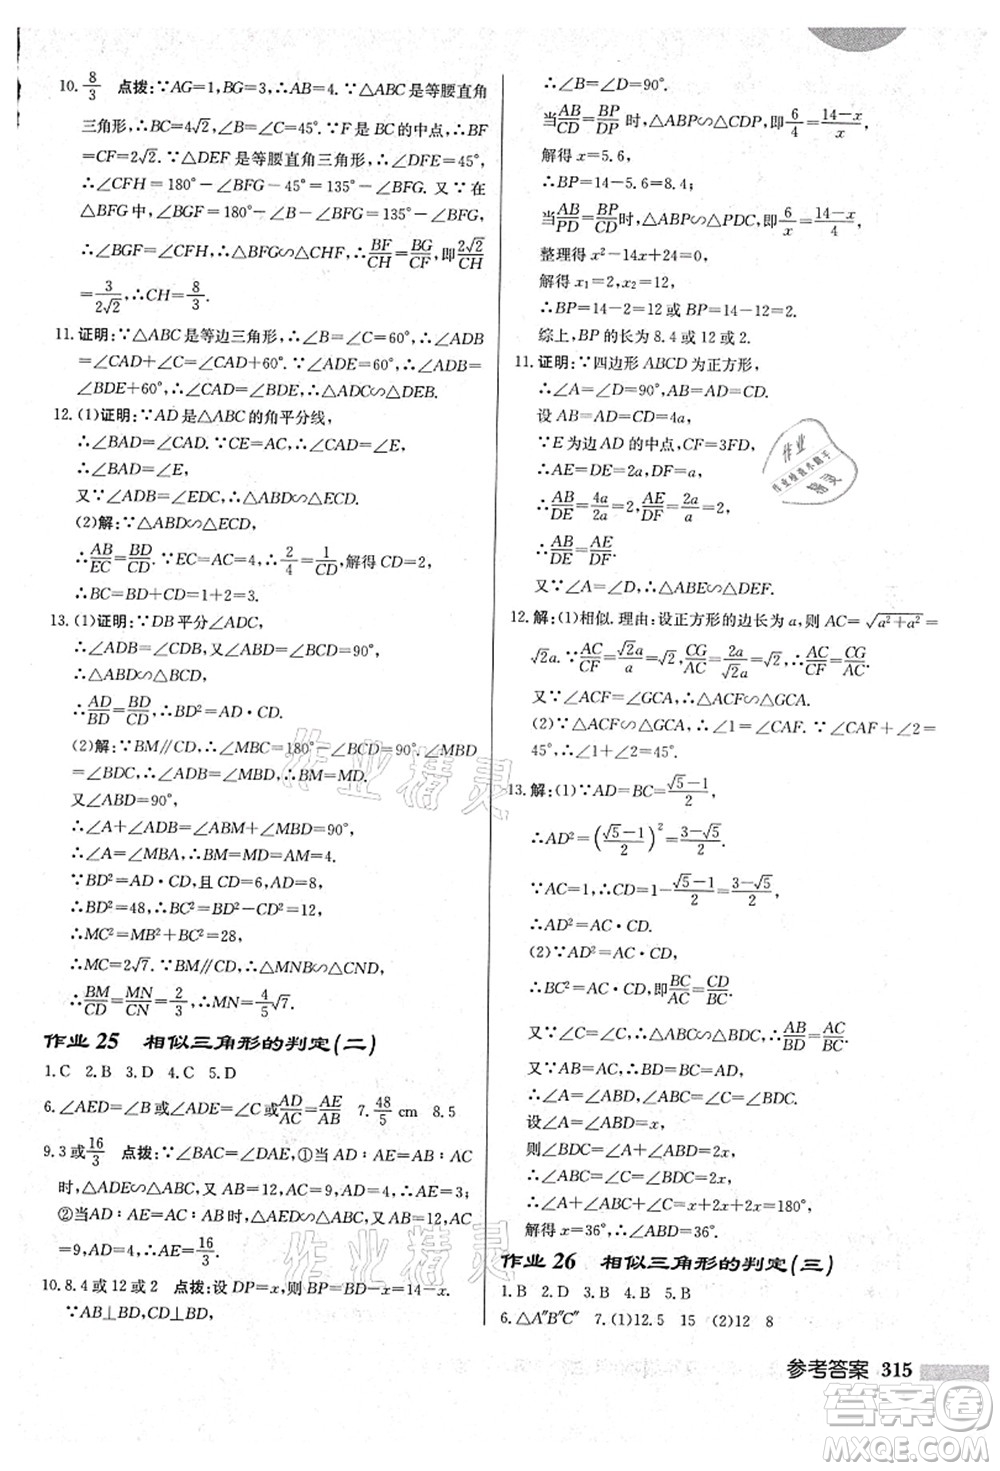 10. 8/3 点拨:∵AG=1,BG=3,∴AB=4.∵△ABC是等腰直角
三角形,∴BC=4√2,∠B=∠C=45°.∵F是BC的中点,∴BF
=CF=2√2.∵△DEF是等腰直角三角形,∴∠DFE=45°,
∴∠CFH=180°-∠BFG-45°=135°-∠BFG.又∵在
△BFG中,∠BGF=180°-∠B-∠BFG=135°-∠BFG,
∴∠BGF=∠CFH,∴△BFG∽△CHF,∴BF/CH=BG/CF,即2√2/CH
=3/2√2,∴CH=8/3.
11.证明:∵△ABC是等边三角形,∴∠B=∠C=60°,∴∠ADB
=∠CAD+∠C=∠CAD+60°.∵∠ADE=60°,∴∠ADB=
∠BDE+60°,∴∠CAD=∠BDE,∴△ADC∽△DEB.
12.(1)证明:∵AD是△ABC的角平分线,
∴∠BAD=∠CAD.∵CE=AC,∴∠CAD=∠E,
∴∠BAD=∠E,
又∵∠B=∠ECD,∴△ABD∽△ECD.
(2)解:∵△ABD∽△ECD,
∴AB/EC=BD/CD.∵EC=AC=4,∴2/4=1/CD,解得CD=2,
∴BC=BD+CD=1+2=3.
13.(1)证明:∵DB平分∠ADC,
∴∠ADB=∠CDB,又∵∠ABD=∠BCD=90°,
∴△ABD∽△BCD,
∴AD/BD=BD/CD,∴BD²=AD·CD.
(2)解:∵BM∥CD,∴∠MBC=180°-∠BCD=90°,∠MBD
=∠BDC,∴∠ADB=∠MBD,∴BM=MD.
又∠ABD=90°,
∴∠A+∠ADB=∠ABM+∠MBD=90°,
∴∠A=∠MBA,∴AM=BM=MD=4.
∵BD²=AD·CD,且CD=6,AD=8,
∴BD²=48,∴BC²=BD²-CD²=12,
∴MC²=MB²+BC²=28,
∴MC=2√7.∵BM∥CD,∴△MNB∽△CND,
∴BM/CD=MN/CN=2/3,∴MN=4/5√7.
作业25 相似三角形的判定(二)
1.C 2.B 3.D 4.C 5.D
6.∠AED=∠B或∠ADE=∠C或AD/AC=AE/AB 7.48/5 cm 8.5
9.3或16/3 点拨:∵∠BAC=∠DAE,①当AD∶AE=AB∶AC
时,△ADE∽△ABC,又AB=12,AC=9,AD=4,∴AE=3;
②当AD∶AE=AC∶AB时,△ADE∽△ACB,又AB=12,AC
=9,AD=4,∴AE=16/3.
10.8.4或12或2 点拨:设DP=x,则BP=BD-x=14-x.
∵AB⊥BD,CD⊥BD,
∴∠B=∠D=90°.
当AB/CD=BP/DP时,△ABP∽△CDP,即6/4=14-x/x,
解得x=5.6,
∴BP=14-5.6=8.4;
当AB/PD=BP/CD时,△ABP∽△PDC,即6/x=14-x/4,
整理得x²-14x+24=0,
解得x₁=2,x₂=12,
∴BP=14-2=12或BP=14-12=2.
综上,BP的长为8.4或12或2.
11.证明:∵四边形ABCD为正方形,
∴∠A=∠D=90°,AB=AD=CD.
设AB=AD=CD=4a,
∵E为边AD的中点,CF=3FD,
∴AE=DE=2a,DF=a,
∴AB/DE=4a/2a=2,AE/DF=2a/a=2,
∴AB/DE=AE/DF.
又∵∠A=∠D,∴△ABE∽△DEF.
12.解:(1)相似.理由:设正方形的边长为a,则AC=√a²+a²=
√2a.∵AC/CF=√2a/a=√2,CG/AC=2a/√2a=√2,∴AC/CF=CG/AC.
又∵∠ACF=∠GCA,∴△ACF∽△GCA.
(2)∵△ACF∽△GCA,∴∠1=∠CAF.∵∠CAF+∠2=
45°,∴∠1+∠2=45°.
13.解:(1)∵AD=BC=√5-1/2,
∴AD²=(√5-1/2)²=3-√5/2.
∵AC=1,∴CD=1-√5-1/2=3-√5/2,
∴AD²=AC·CD.
(2)∵AD=BC,AD²=AC·CD,
∴BC²=AC·CD,即BC/AC=CD/BC.
又∵∠C=∠C,∴△BCD∽△ACB,∴AB/BD=AC/BC=1,
∴∠DBC=∠A,∴DB=CB=AD,
∴∠A=∠ABD,∠C=∠BDC.
设∠A=x,
则∠DBC=∠ABD=x,
∴∠C=∠BDC=∠A+∠ABD=2x,
∴∠A+∠ABC+∠C=x+2x+2x=180°,
解得x=36°,∴∠ABD=36°.
作业26 相似三角形的判定(三)
1.B 2.D 3.B 4.B 5.B
6.△A″B″C″ 7.(1)12.5 15 (2)12 8
参考答案 315
作业精灵
作业精灵
答案卷
MXQE.COM